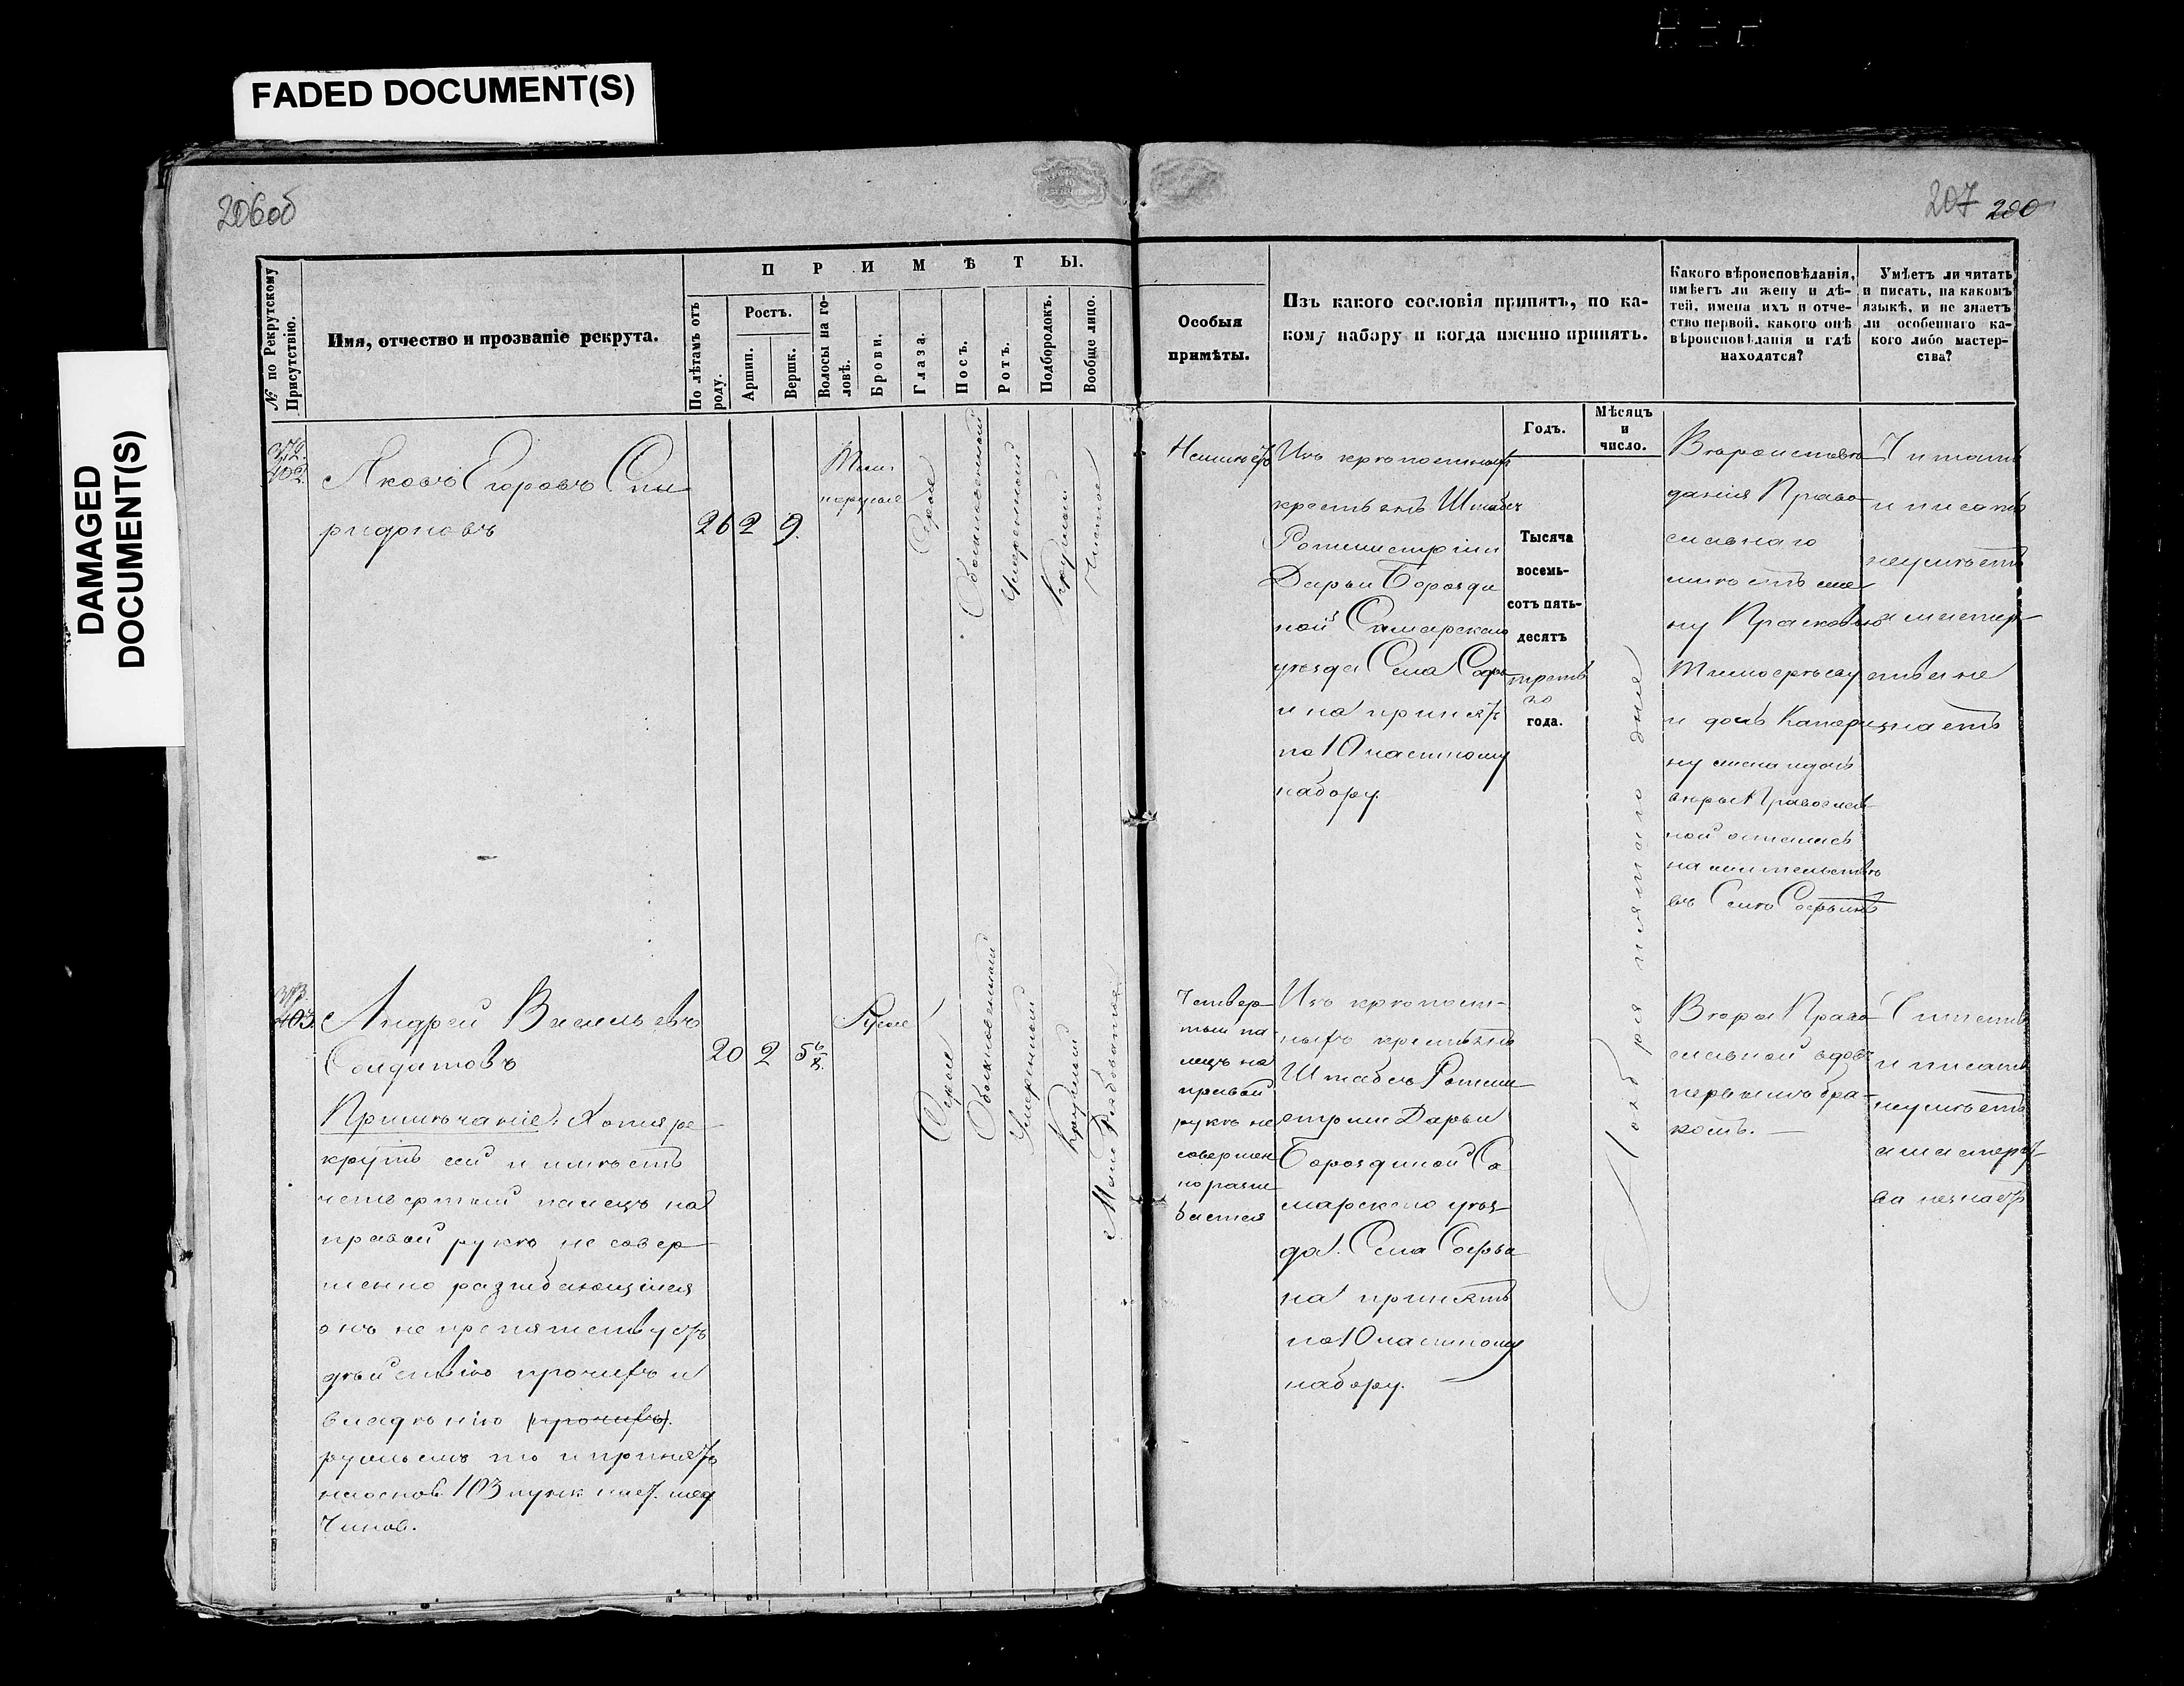 FADED DOCUMENT(S)
DAMAGED
DOCUMENT(S)
206об
207 200
№ по Рекрутскому Присутствію.
Имя, отчество и прозваніе рекрута.
П Р И М Ѣ Т Ы.
По лѣтамъ отъ роду.
Ростъ.
Аршин.
Вершк.
Волосы на головѣ.
Брови.
Глаза.
Носъ.
Ротъ.
Подбородокъ.
Вообще лицо.
Особыя
примѣты.
Изъ какого сословія принятъ, по ка-
кому набору и когда именно принятъ.
Какого вѣроисповѣданія,
имѣетъ ли жену и дѣ-
тей, имена ихъ и отче-
ство первой, какого онѣ
вѣроисповѣданія и гдѣ
находятся?
Умѣетъ ли читать
и писать, на какомъ
языкѣ, и не знаетъ
ли особеннаго ка-
кого либо мастер-
ства?
Годъ.
Мѣсяцъ
и
число.
372.
402.
Яковъ Егоровъ Спи
ридоновъ
26 2 9.
Темно
русые
Серые
Обыкновенный
Умеренный
Круглый
Чистое
Неимѣетъ
Изъ крѣпостныхъ
крестьянъ Штабсъ
Ротмистрши
Дарьи Борозди
ной Самарскаго
уѣзда Села Софь
ина принятъ
по 10 частному
набору.
Тысяча
восемь-
сотъ пять-
десятъ
третьяго
года.
Ноября пятаго дня
Вѣроисповѣ
данія Право
славнаго
имѣетъ же
ну Прасковью
Тимофѣеву
и дочь Катери
ну жена и дочь
вѣры Православ
ной остались
на жительствѣ
въ Селѣ Софьинѣ
Читать
и писать
неумѣетъ
а мастер
ства не
знаетъ
373.
403.
Андрей Васильевъ
Солдатовъ
20 2 5 6/8.
Русые
Серые
Обыкновенный
Умеренный
Круглый
Мало Рябоватое
Примѣчаніе: Хотя ре
крутъ сей и имѣетъ
четвертый палецъ на
правой рукѣ не совер
шенно разгибающійся
онъ не препятствуетъ
дѣйствію прочихъ и
владѣнію (прочихъ).
ружьемъ то и принятъ
на основ. 103 пунк. наст. мед
Чинов.
Четвер
тый па
лецъ на
правой
рукѣ не
совершен
но разги
бается
Изъ крѣпост-
ныхъ крестьянъ
Штабсъ Ротми
стрши Дарьи
Бороздиной Са
марскаго уѣз
да. Села Софьи
на принятъ
по 10 частному
набору.
Вѣры Право
славной вдовъ
первымъ бра
комъ.
Читать
и писать
неумѣетъ
а мастерст
ва незнаетъ